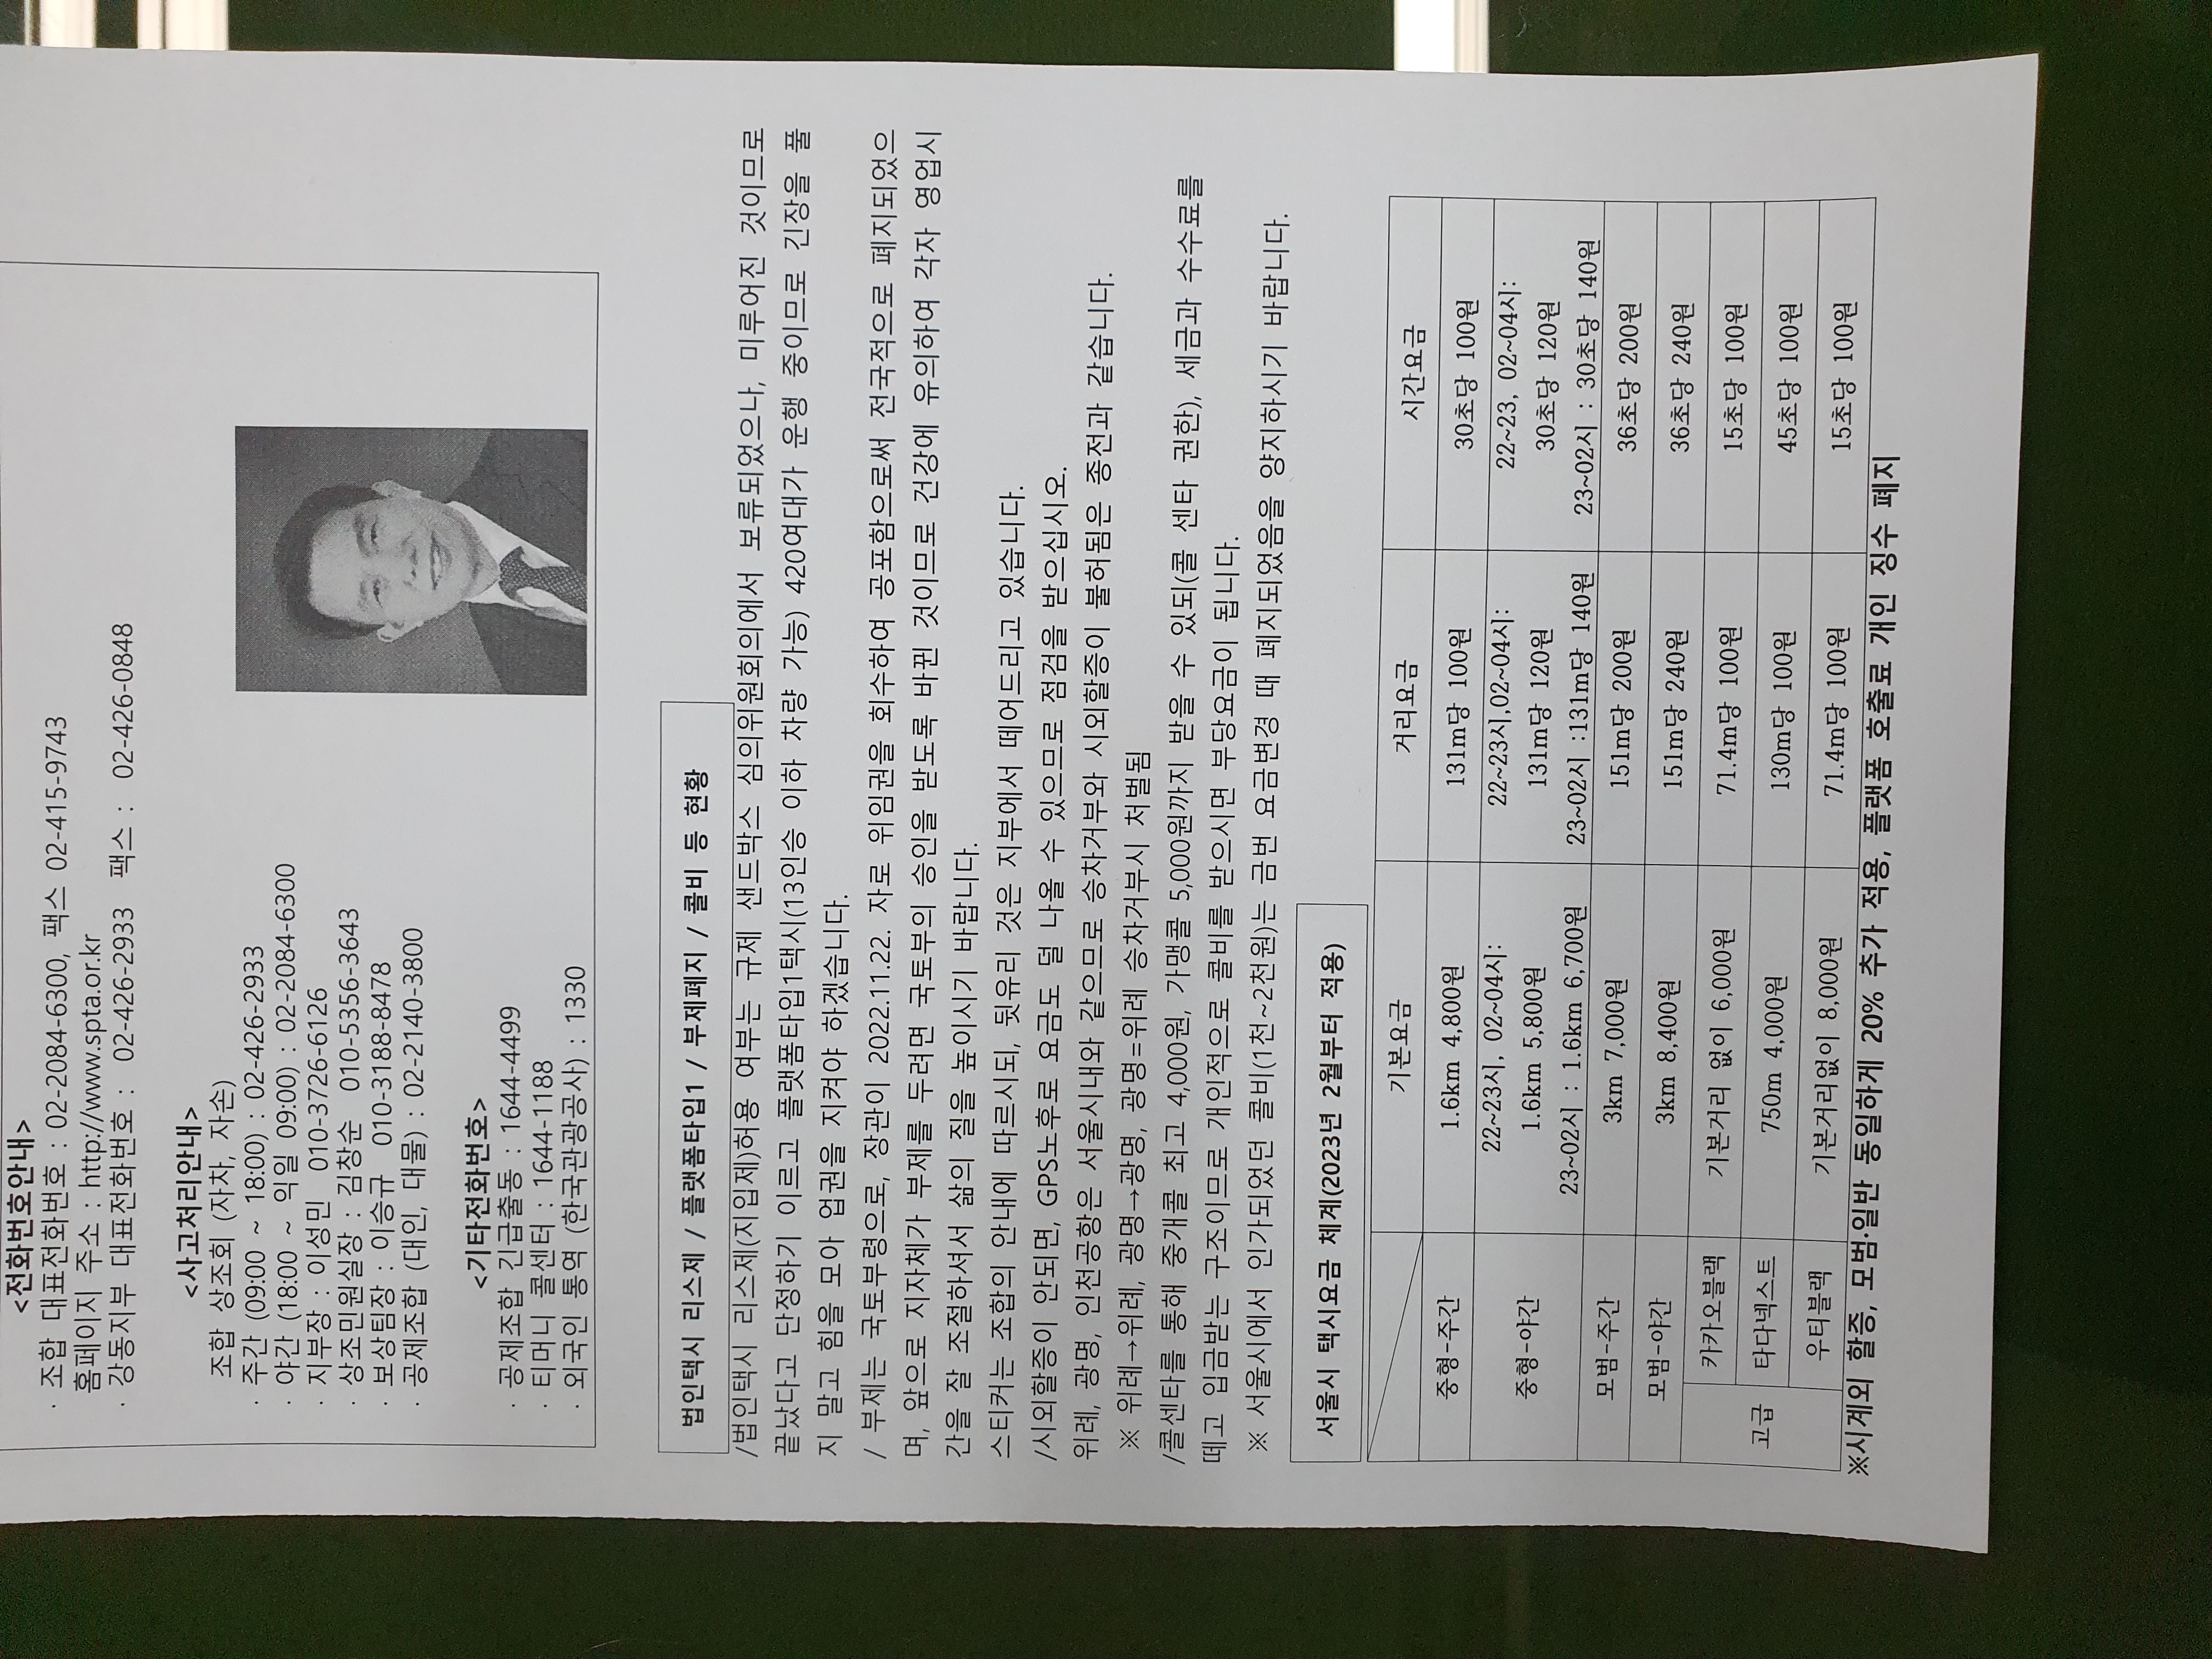 <전화번호안내>
· 조합 대표전화번호 : 02-2084-6300, 팩스 02-415-9743
홈페이지 주소 : http://www.spta.or.kr
· 강동지부 대표전화번호 : 02-426-2933 팩스 : 02-426-0848
<사고처리안내>
조합 상조회 (자차, 자손)
· 주간 (09:00 ~ 18:00) : 02-426-2933
· 야간 (18:00 ~ 익일 09:00) : 02-2084-6300
· 지부장 : 이성민 010-3726-6126
· 상조민원실장 : 김창순 010-5356-3643
· 보상팀장 : 이승규 010-3188-8478
· 공제조합 (대인, 대물) : 02-2140-3800
<기타전화번호>
· 공제조합 긴급출동 : 1644-4499
· 티머니 콜센터 : 1644-1188
· 외국인 통역 (한국관광공사) : 1330
법인택시 리스제 / 플랫폼타입1 / 부제폐지 / 콜비 등 현황
/법인택시 리스제(지입제)허용 여부는 규제 샌드박스 심의위원회의에서 보류되었으나, 미루어진 것이므로
끝났다고 단정하기 이르고 플랫폼타입1택시(13인승 이하 차량 가능) 420여대가 운행 중이므로 긴장을 풀
지 말고 힘을 모아 업권을 지켜야 하겠습니다.
/ 부제는 국토부령으로, 장관이 2022.11.22. 자로 위임권을 회수하여 공포함으로써 전국적으로 폐지되었으
며, 앞으로 지자체가 부제를 두려면 국토부의 승인을 받도록 바뀐 것이므로 건강에 유의하여 각자 영업시
간을 잘 조절하셔서 삶의 질을 높이시기 바랍니다.
스티커는 조합의 안내에 따르시되, 뒷유리 것은 지부에서 떼어드리고 있습니다.
/시외할증이 안되면, GPS노후로 요금도 덜 나올 수 있으므로 점검을 받으십시오.
위례, 광명, 인천공항은 서울시내와 같으므로 승차거부와 시외할증이 불허됨은 종전과 같습니다.
※ 위례→위례, 광명→광명, 광명=위례 승차거부시 처벌됨
/콜센타를 통해 중개콜 최고 4,000원, 가맹콜 5,000원까지 받을 수 있되(콜 센타 권한), 세금과 수수료를
떼고 입금받는 구조이므로 개인적으로 콜비를 받으시면 부당요금이 됩니다.
※ 서울시에서 인가되었던 콜비(1천~2천원)는 금번 요금변경 때 폐지되었음을 양지하시기 바랍니다.
서울시 택시요금 체계(2023년 2월부터 적용)
기본요금 거리요금 시간요금
중형-주간 1.6km 4,800원 131m당 100원 30초당 100원
22~23시, 02~04시: 22~23시,02~04시: 22~23, 02~04시:
중형-야간 1.6km 5,800원 131m당 120원 30초당 120원
23~02시 : 1.6km 6,700원 23~02시 :131m당 140원 23~02시 : 30초당 140원
모범-주간 3km 7,000원 151m당 200원 36초당 200원
모범-야간 3km 8,400원 151m당 240원 36초당 240원
고급 카카오블랙 기본거리 없이 6,000원 71.4m당 100원 15초당 100원
타다넥스트 750m 4,000원 130m당 100원 45초당 100원
우티블랙 기본거리없이 8,000원 71.4m당 100원 15초당 100원
※시계외 할증, 모범·일반 동일하게 20% 추가 적용, 플랫폼 호출료 개인 징수 폐지